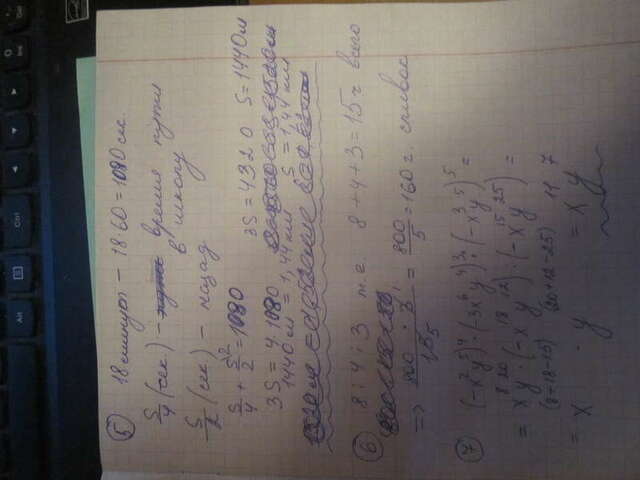 Alt Ctrl 0 Ins
5 18 минут - 18·60 = 1080 сек.
S/4 (сек) - время пути
в школу
S/2 (сек) - назад
S/4 + S/2 = 1080 3S = 4320 S = 1440 м
3S = 4·1080
1440 м = 1,44 км S = 1,44 км
6 8 : 4 : 3 т.е. 8 + 4 + 3 = 15 ч всего
=> 800 · 3 / 15 5 = 800/5 = 160 г. сливок
7 (-x²y⁵)⁴ · (-3x⁶y⁴)³ : (-x³y⁵)⁵ =
= x⁸y²⁰ · (-x¹⁸y¹²) : (-x¹⁵y²⁵) =
= x^(8+18-15) · y^(20+12-25) = x¹¹y⁷